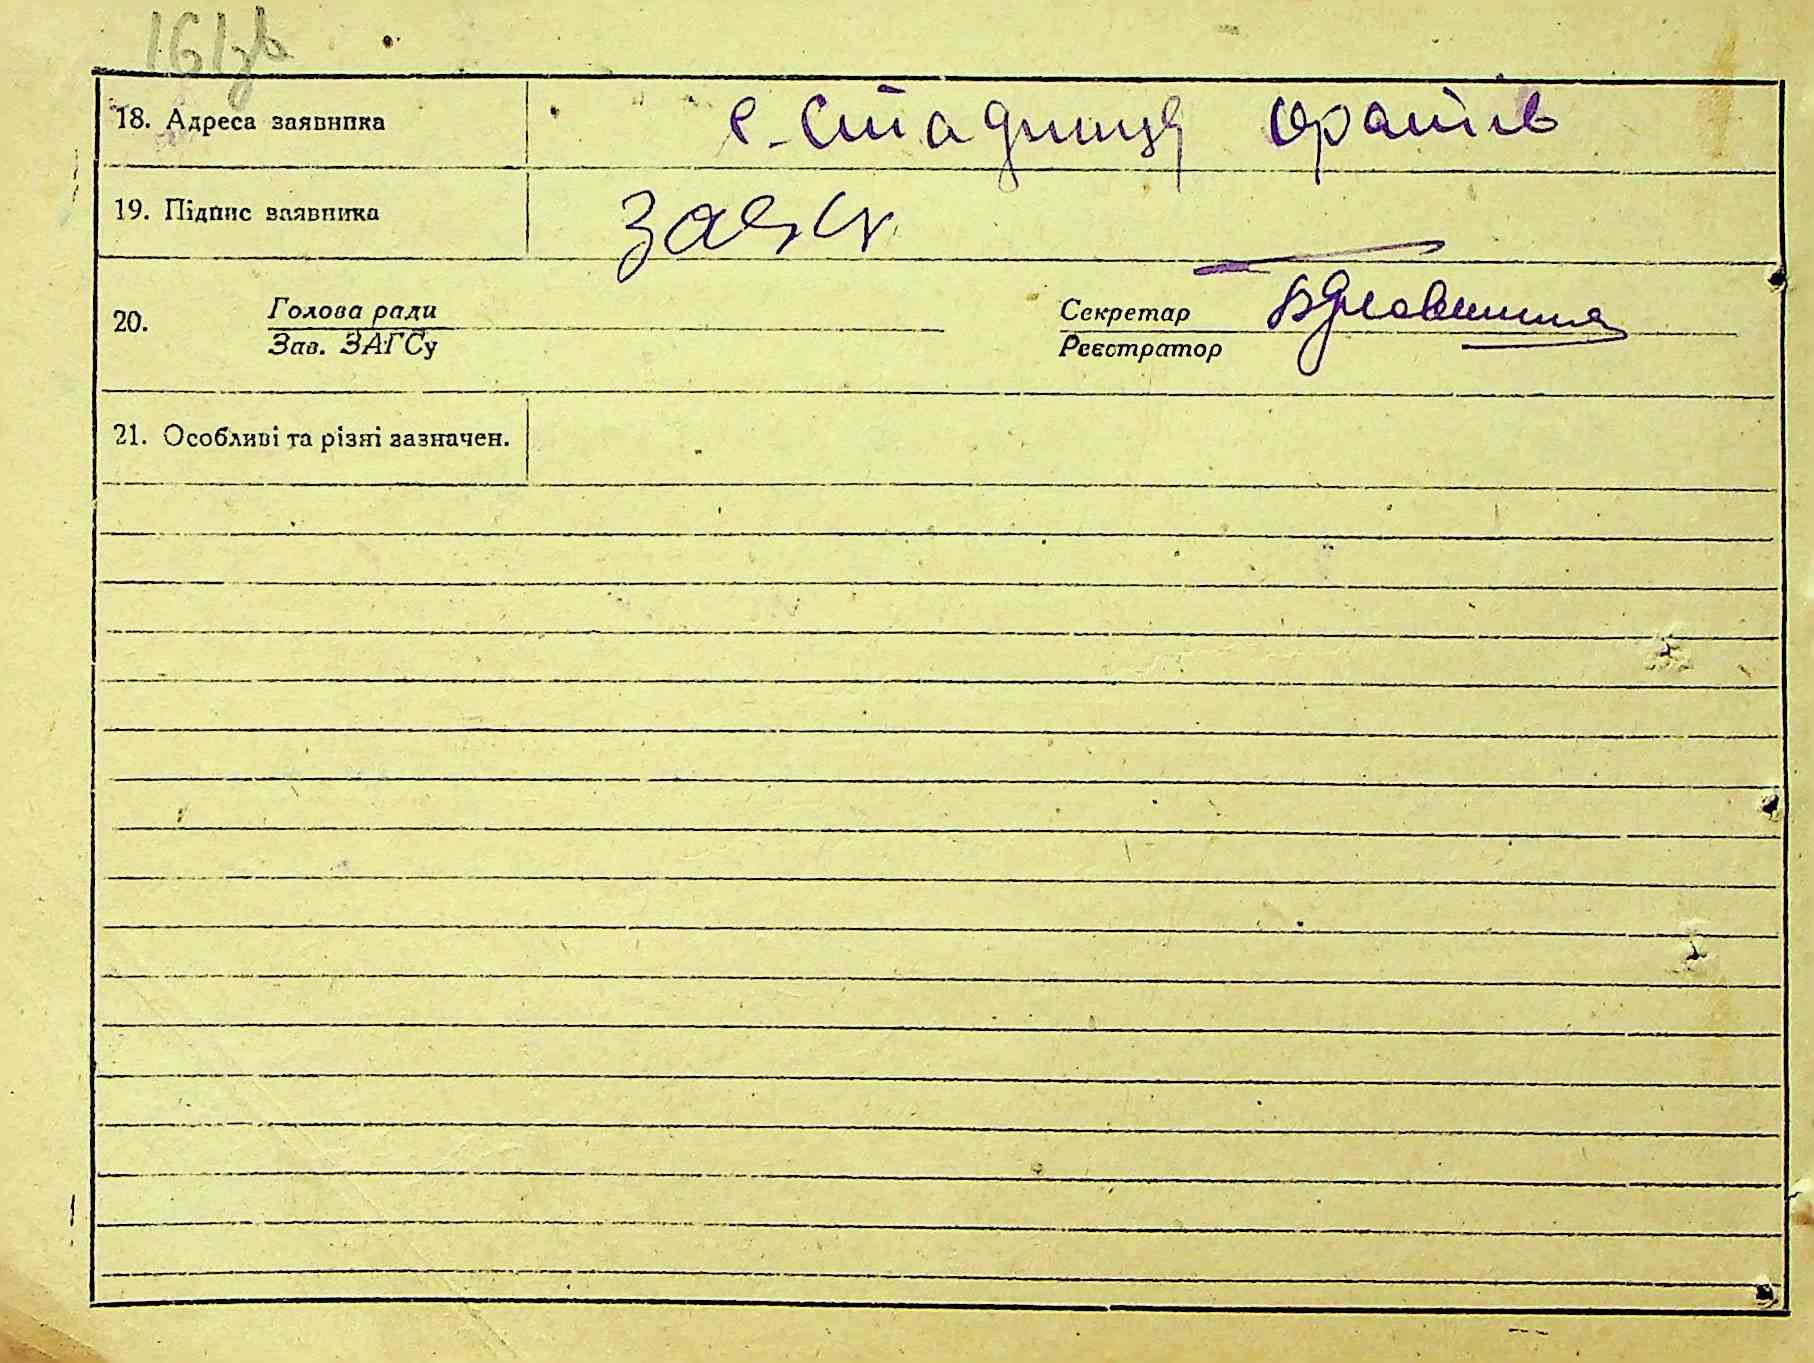 161зв
18. Адреса заявника с-Стадниця Оратів
19. Підпис заявника
20. Голова ради Секретар
Зав. ЗАГСу Реєстратор
21. Особливі та різні зазначен.